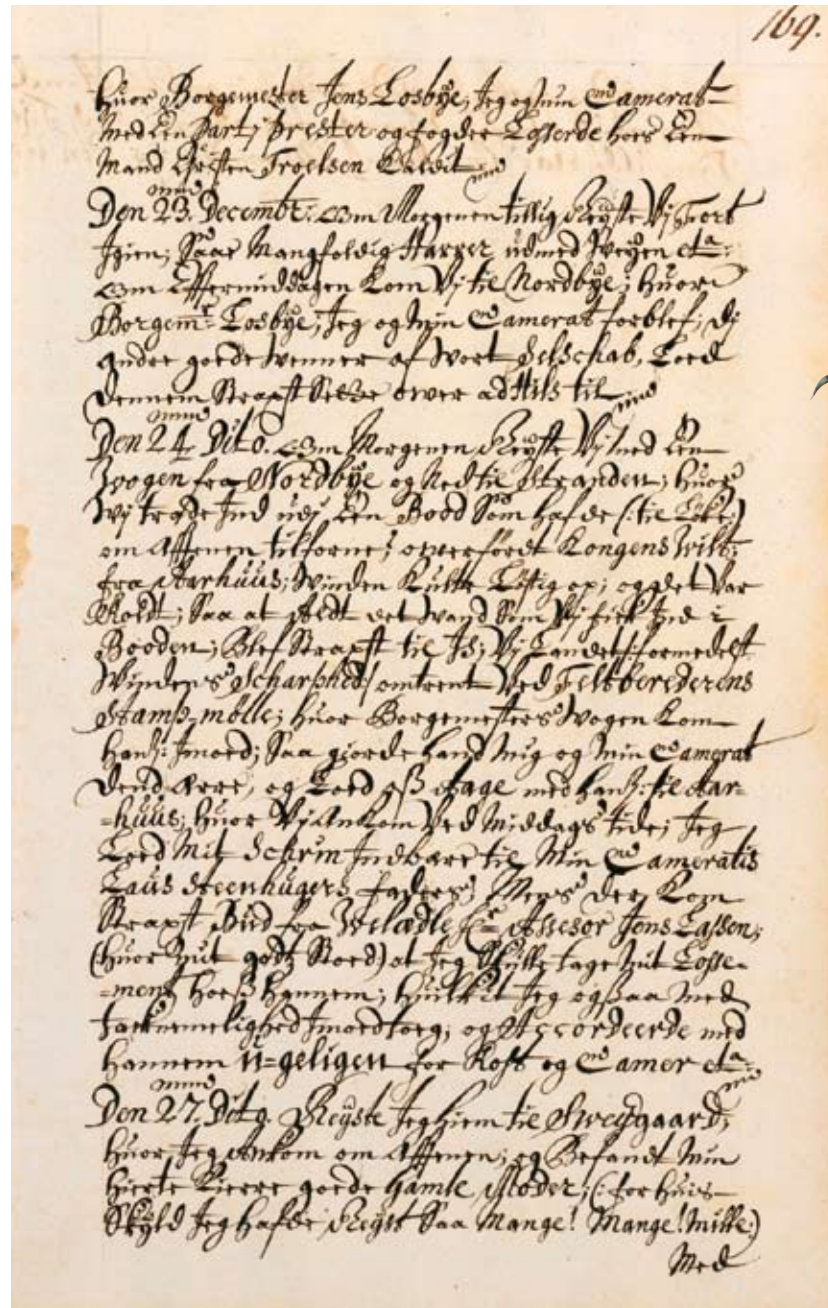 169.
Huor Borgemester Jens Losbÿe, Jeg og min Camerat
Med Een Part, Prester og fogder Losserde hoes Een
Mand Christen Troelsen Kaldit
Den 23. Decembr: om Morgenen tillig Reÿste Vj Fort
Igien; Saae Mangfoldig Harrer ud med Weÿen etc:
om Efftermiddagen Kom Vj til Nordbÿe; huor
Borgemr: Losbÿe, Jeg og Min Camerat forblef; Dj
andre goede Wenner af Wort Selschab, Loed
Dennem Straxt Sette ower ad Hils til
Den 24. Dito. om Morgenen Reÿste Vj med Een
Wogen fra Nordbÿe og Ned til Stranden; huor
Wj træde Ind udj Een Bood Som hafde (: til Løke:)
om Afftenen tilforne; owerførdt Kongens Wilt:
fra Aarhuus; Winden Kulte Løstig op; og det Var
Koldt; Saa at Aldt det Wand Som Vj fick Ind i
Booden; Blef Straxt til Is; Vj Landet/: formedelst
Windens Scharphed/ omtrent Ved Feltberederens
Stamp-mølle; huor Borgemesters Wogen Kom
hanß: Imoed; Saa giorde hand Mig og Min Camerat
Dend Ærre, og Loed oß Age med hanß: til Aar-
=huus; huor Vj Ankom Ved Middags tide; Jeg
Loed Mit Schrin Indbære til Min Cameratis
Laus Steenhugers faders; Mens Der Kom
Straxt Bud fra Welædle Hr: Assesor Jens Lassen;
(huor Mit godtz Stoed) at Jeg Skulle tage Mit Losse-
=ment hoeß hannem; huilkit Jeg og Saa Med
tacknemelighed Imoedtoeg; og Accordeerde med
hannem ü=geligen for Kost og Camer etc:
Den 27. Dito. Reÿste Jeg hiem til Sweÿgaard;
huor Jeg Ankom om Afftenen; og Befandt Min
hierte Kierre goede Gamle Moder; (: for huis
Skÿld Jeg hafde Reÿst Saa Mange! Mange! Mille:)
Med